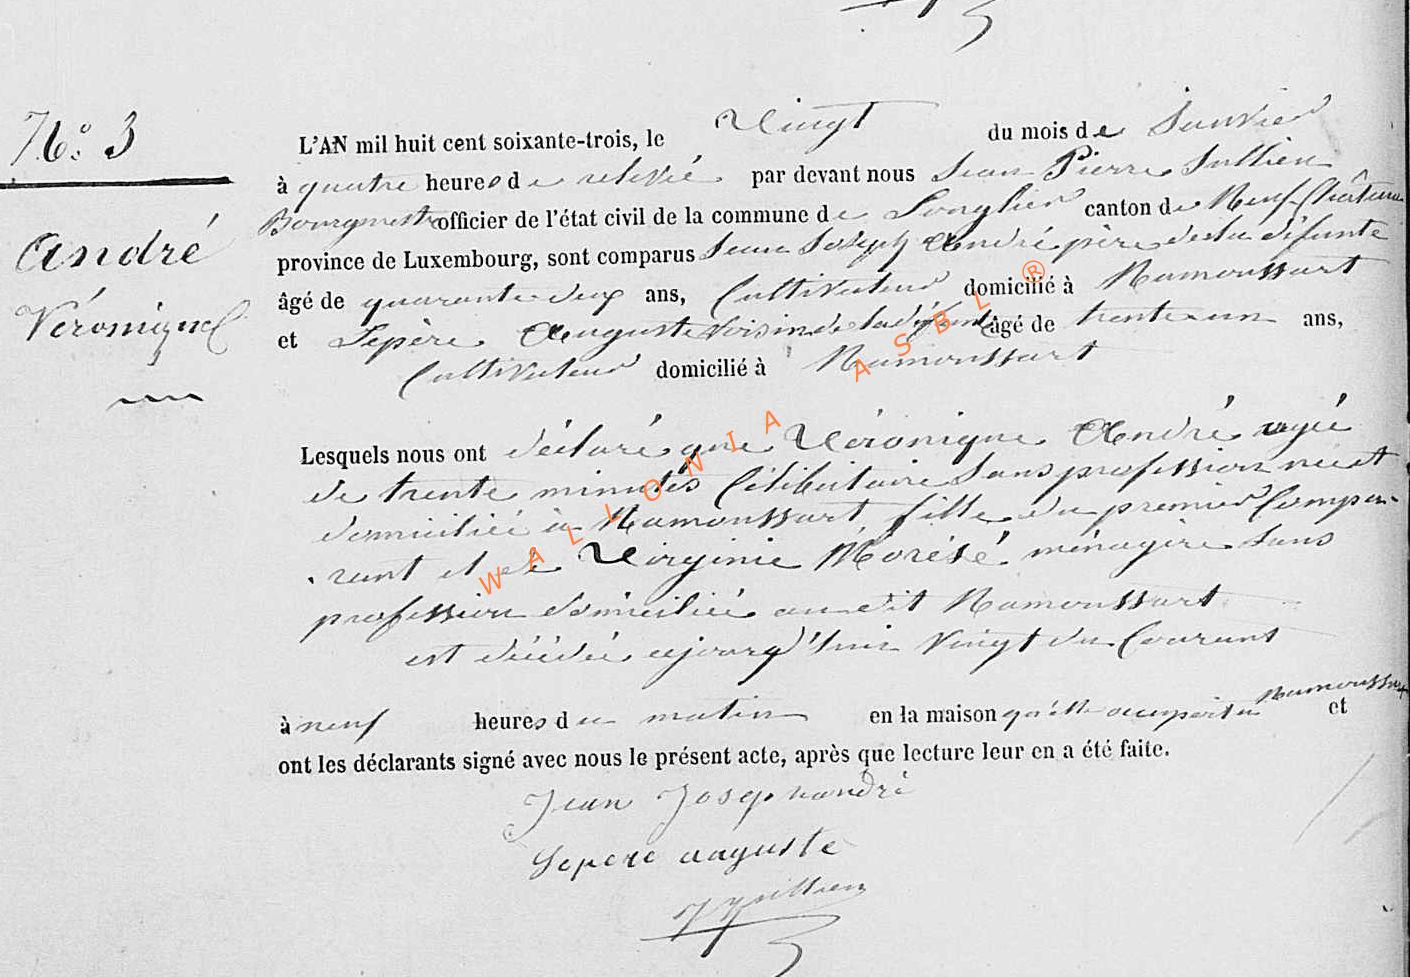 N.° 3
André
Véronique
L'AN mil huit cent soixante-trois, le Vingt du mois de Janvier
à quatre heures de relevée par devant nous Jean Pierre Jullien
Bourgmestre officier de l'état civil de la commune de Longlier canton de Neufchâteau
province de Luxembourg, sont comparus Jean Joseph André père de la défunte
âgé de quarante deux ans, Cultivateur domicilié à Namoussart
et Lepère Auguste voisin de la défunte âgé de trente un ans,
Cultivateur domicilié à Namoussart
Lesquels nous ont déclaré que Véronique André agée
de trente minutes Célibataire sans profession née et
domiciliée à Namoussart fille du premier Compa-
rant et de Virginie ménagère sans
profession domiciliée au dit Namoussart
est décédée ajourd'hui Vingt du Courant
à neuf heures du matin en la maison qu'elle occupait à Namoussart et
ont les déclarants signé avec nous le présent acte, après que lecture leur en a été faite.
Jean Joseph andré
Lepere auguste
JPJullien
WALLONIA ASBL ®